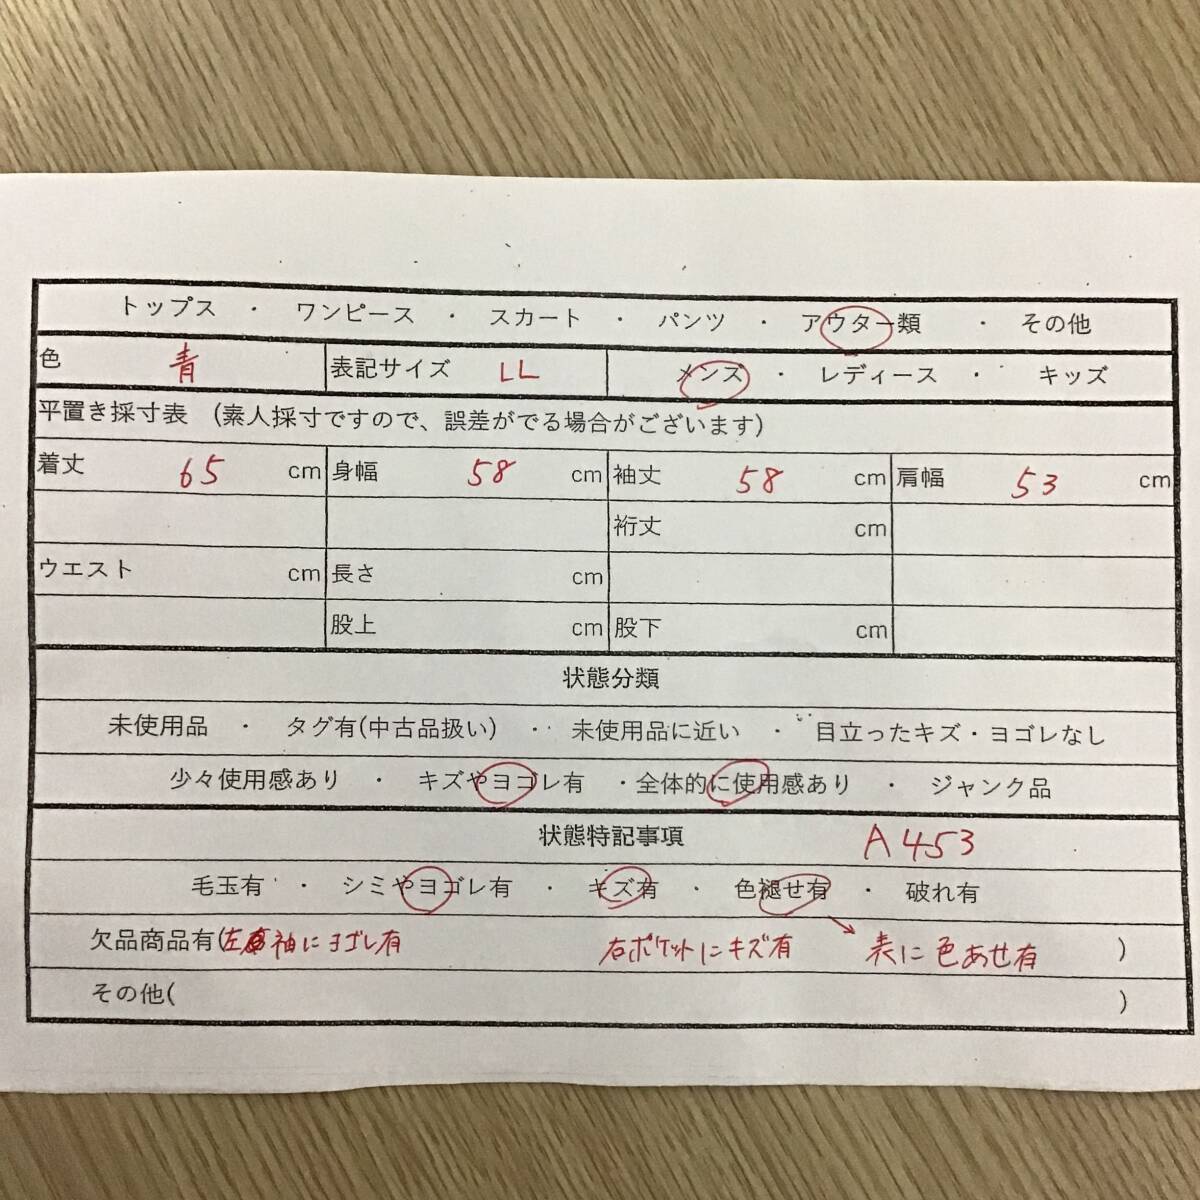 トップス ・ ワンピース ・ スカート ・ パンツ ・ アウター類 ・ その他
色 青 表記サイズ LL メンズ ・ レディース ・ キッズ
平置き採寸表 (素人採寸ですので、誤差がでる場合がございます)
着丈 65 cm 身幅 58 cm 袖丈 58 cm 肩幅 53 cm
裄丈 cm
ウエスト cm 長さ cm
股上 cm 股下 cm
状態分類
未使用品 ・ タグ有(中古品扱い) ・ 未使用品に近い ・ 目立ったキズ・ヨゴレなし
少々使用感あり ・ キズやヨゴレ有 ・全体的に使用感あり ・ ジャンク品
状態特記事項 A453
毛玉有 ・ シミやヨゴレ有 ・ キズ有 ・ 色褪せ有 ・ 破れ有
欠品商品有(左袖にヨゴレ有 右ポケットにキズ有 表に色あせ有 )
その他( )